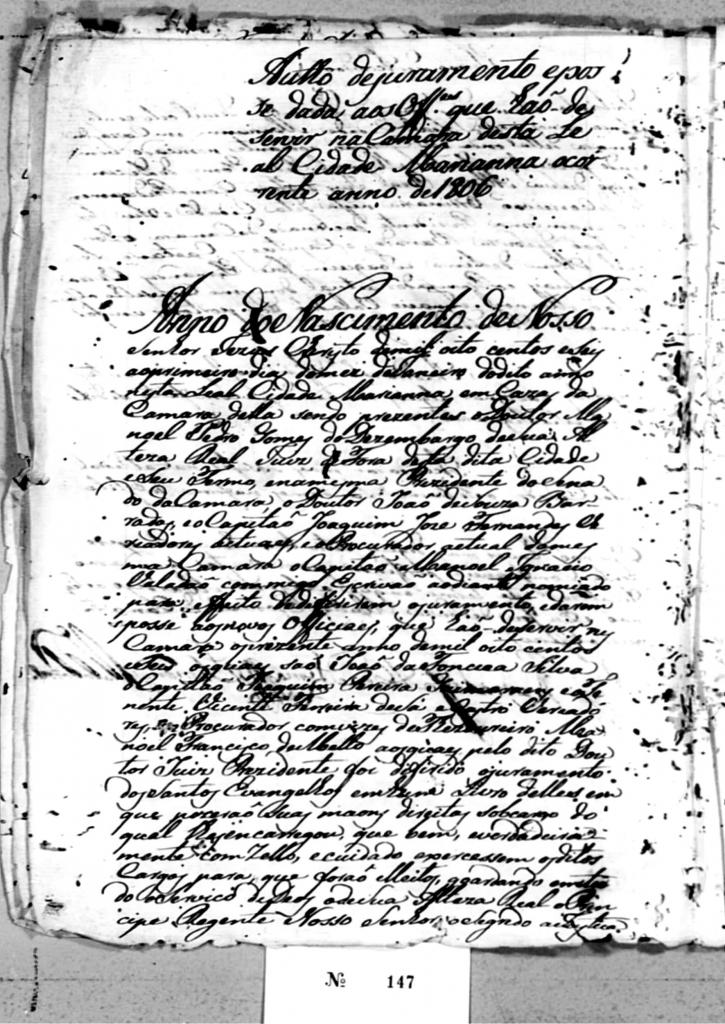 Autto dejuramento epos
se dada aos Off.es que haõ de
servir na Camara desta Le
al Cidade Marianna ocor
rente anno de 1806
Anno do Nascimento de Nosso
Senhor Jezus Christo demil oito centos eSeis
aoprimeiro dia domez deJaneiro dodito anno
nesta Leal Cidade Marianna, em Cazas da
Camara della sendo prezentes oDoutor Ma
noel Pedro Gomes do Dezembargo deSua Al
teza Real Juiz de Fora desta dita Cidade
eSeu Termo, enamesma Prezidente doSena
do daCamara o Doutor Joaõ deSouza Bar
radas, eoCapitaõ Joaquim Joze Fernandes Ve
riadores actuaes, eoProcurador actual dames
ma Camara oCapitaõ Manoel Ignacio
Valadaõ commigo Escrivaõ aodiante nomiado
para effeito dedeferirem ojuramento, edarem
posse aosnovos Officiaes, que haõ deservir nes
Camara oprezente anno demil oito centos
eSeis saõ Joaõ daFonceca Silva
oCapitaõ Joaquim Pereira eoTe
nente Vicente Ferreira deSá eCastro Veread
res, Procurador comvezes deThezoureiro Ma
noel Francisco deMello aosquaes pelo dito Dou
tor Juiz Prezidente foi difirido ojuramento
dosSantos Evangelhos emhum Livro delles em
que pozeraõ Suas maons direitas sobcargo do
qual lhesencarregou, que bem, everdadeira
mente comZello, ecuidado exercessem osditos
Cargos para, que foraõ elleitos, goardando emtu
do oServiço deDeos odeSua Alteza Real oPrin
cipe Regente Nosso Senhor, oSegredo aJustiça
Nº 147